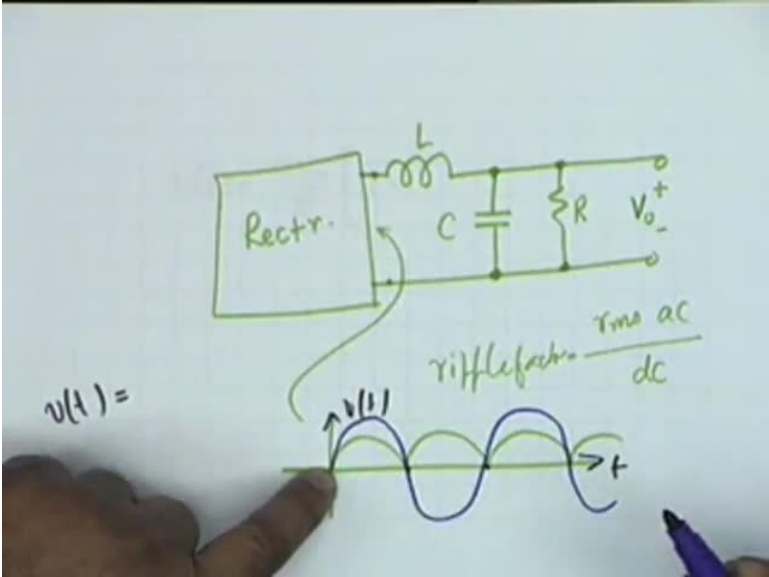 L
Rectr.
C
R
Vo
+
-
ripple factor = rms ac / dc
v(t) =
v(t)
t